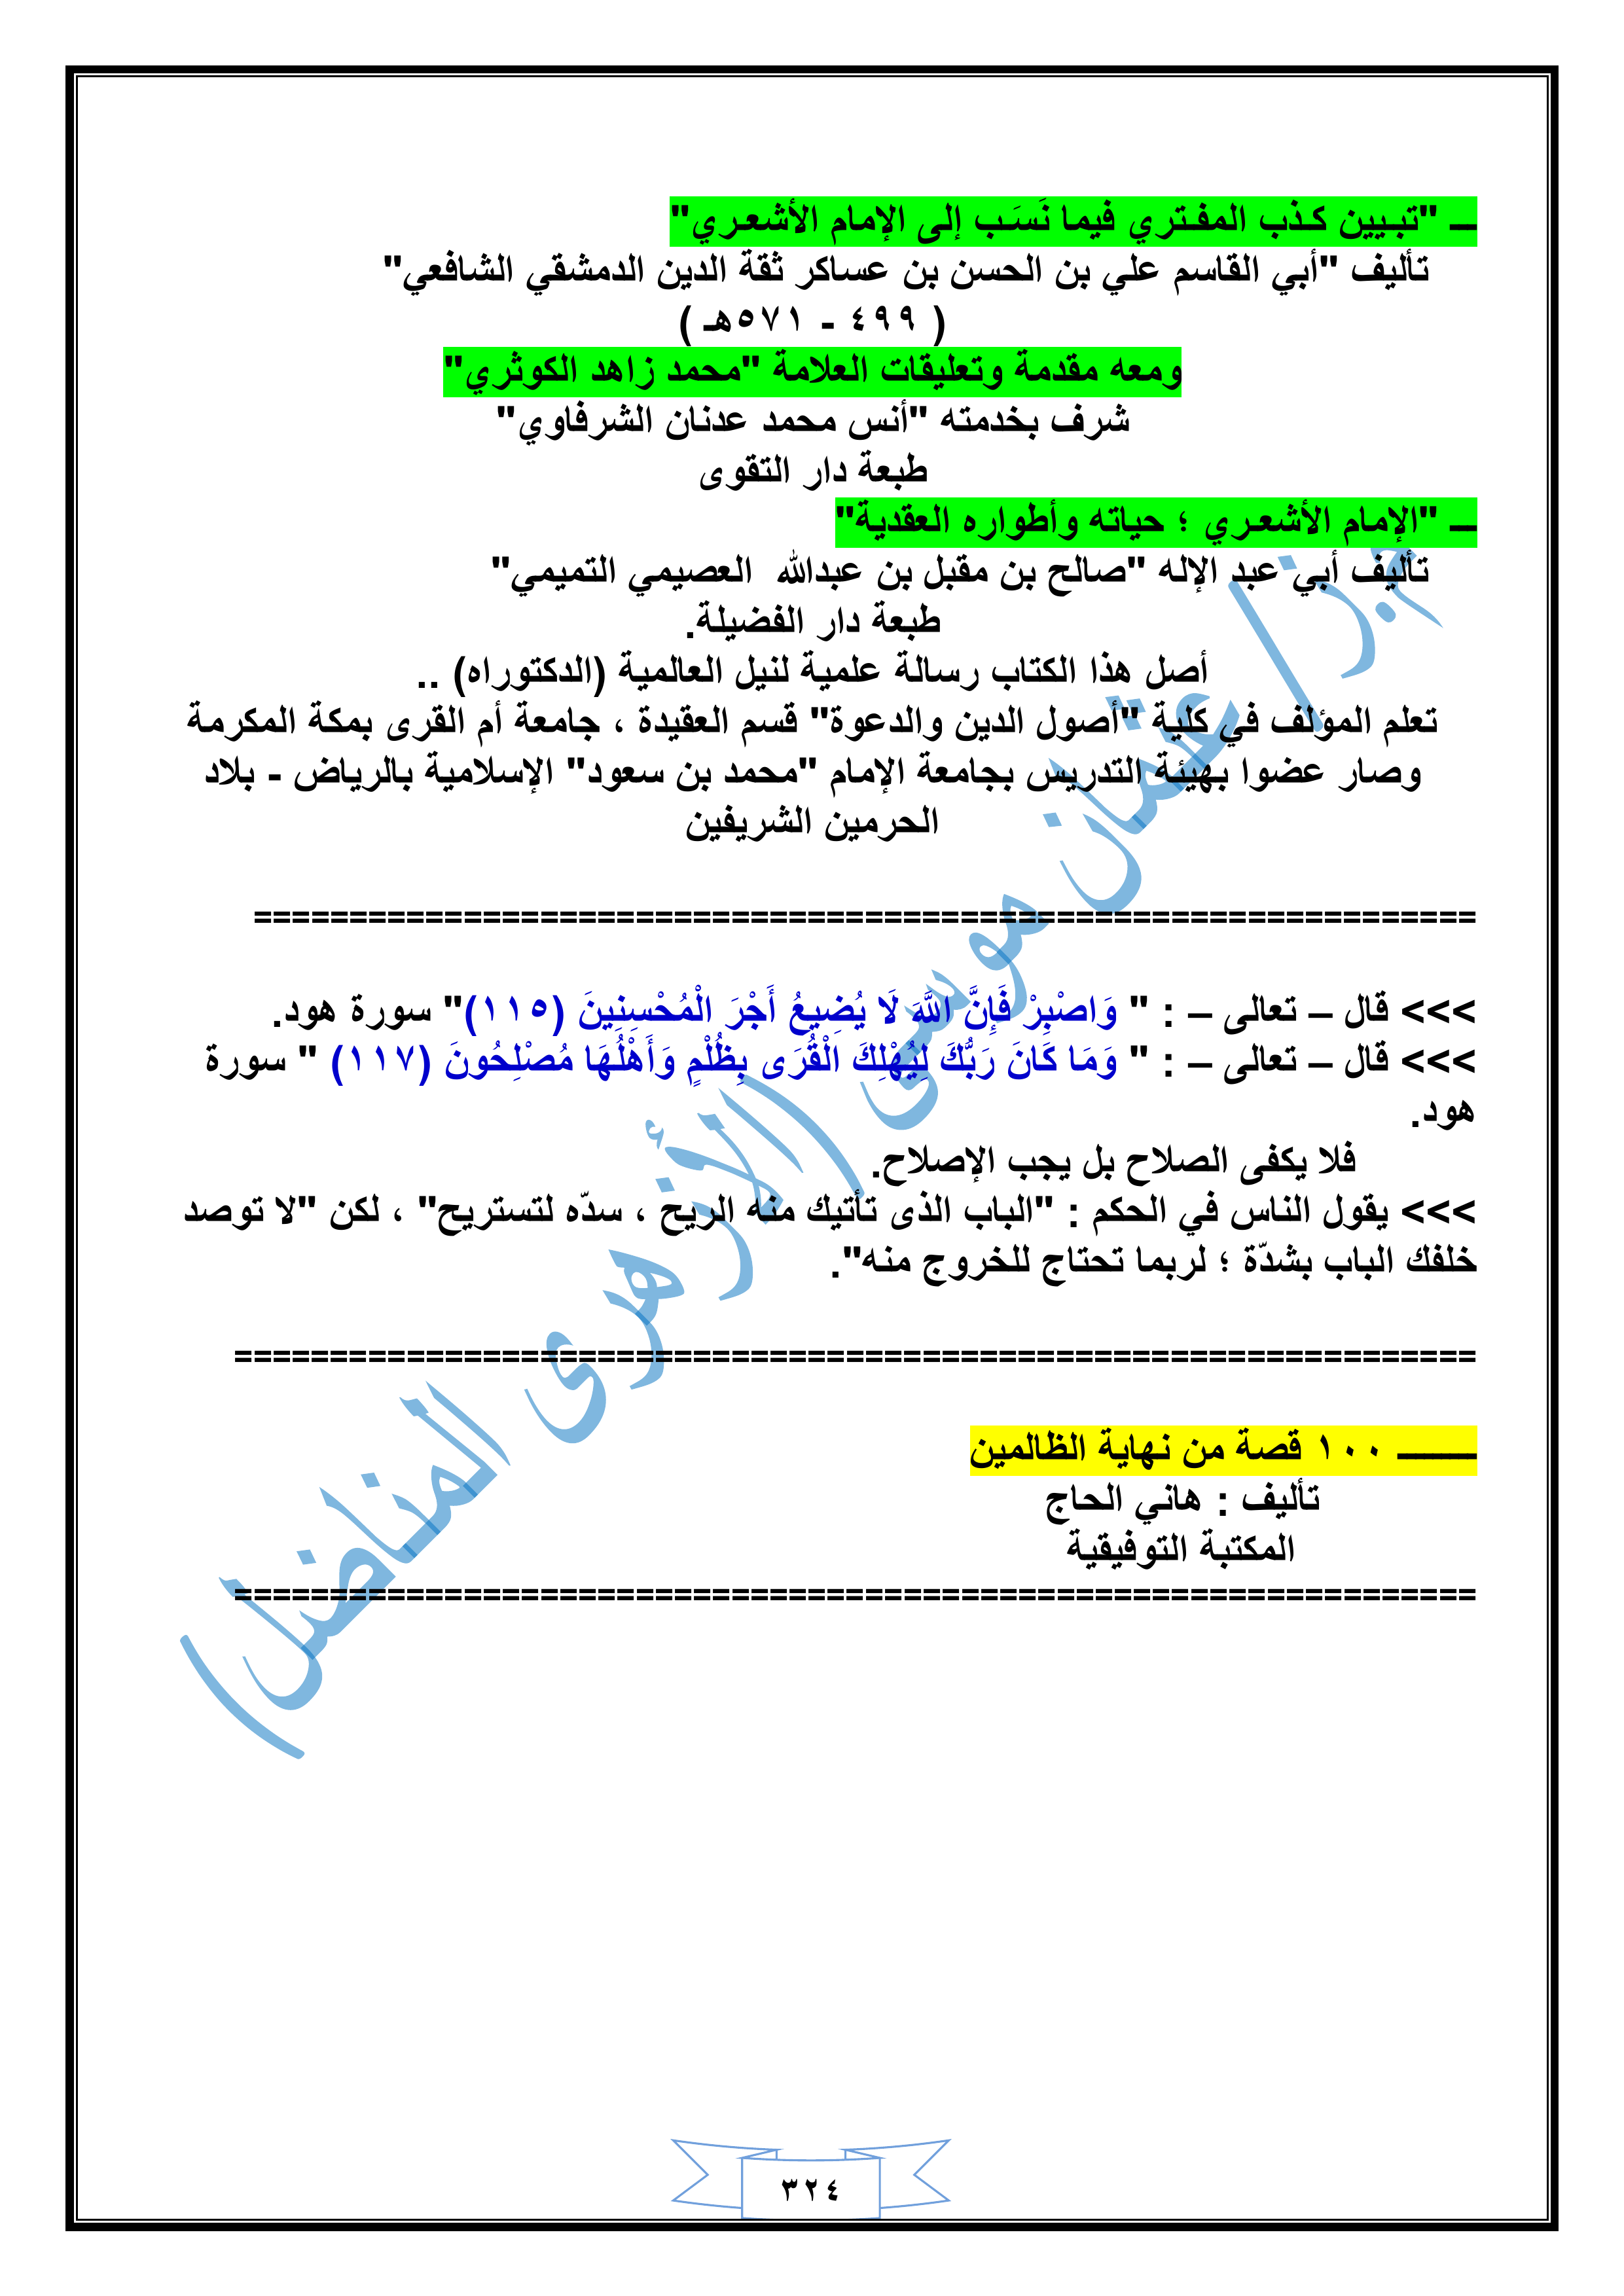 ــ "تبـيين كـذب المفـتري فيما نَسَـب إلى الإمام الأشعـري"
تأليف "أبي القاسم علي بن الحسن بن عساكر ثقة الدين الدمشقي الشافعي"
( ٤٩٩ - ٥٧١هـ )
ومعه مقدمة وتعليقات العلامة "محمد زاهد الكوثري"
شرف بخدمته "أنس محمد عدنان الشرفاوي"
طبعة دار التقوى
ــ "الإمام الأشعـري ؛ حياته وأطواره العقدية"
تأليف أبي عبد الإله "صالح بن مقبل بن عبدالله العصيمي التميمي"
طبعة دار الفضيلة.
أصل هذا الكتاب رسالة علمية لنيل العالمية (الدكتوراه) ..
تعلم المؤلف في كلية "أصول الدين والدعوة" قسم العقيدة ، جامعة أم القرى بمكة المكرمة
وصار عضوا بهيئة التدريس بجامعة الإمام "محمد بن سعود" الإسلامية بالرياض - بلاد
الحرمين الشريفين
================================================================
>>> قال – تعالى – : " وَاصْبِرْ فَإِنَّ اللَّهَ لَا يُضِيعُ أَجْرَ الْمُحْسِنِينَ (١١٥)" سورة هود.
>>> قال – تعالى – : " وَمَا كَانَ رَبُّكَ لِيُهْلِكَ الْقُرَى بِظُلْمٍ وَأَهْلُهَا مُصْلِحُونَ (١١٧) " سورة
هود.
فلا يكفى الصلاح بل يجب الإصلاح.
>>> يقول الناس في الحكم : "الباب الذى تأتيك منه الريح ، سدّه لتستريح" ، لكن "لا توصد
خلفك الباب بشدّة ؛ لربما تحتاج للخروج منه".
=================================================================
ــــــــ ١٠٠ قصة من نهاية الظالمين
تأليف : هاني الحاج
المكتبة التوفيقية
=================================================================
عثمان موسى (الأزهرى المناضل)
٣٢٤